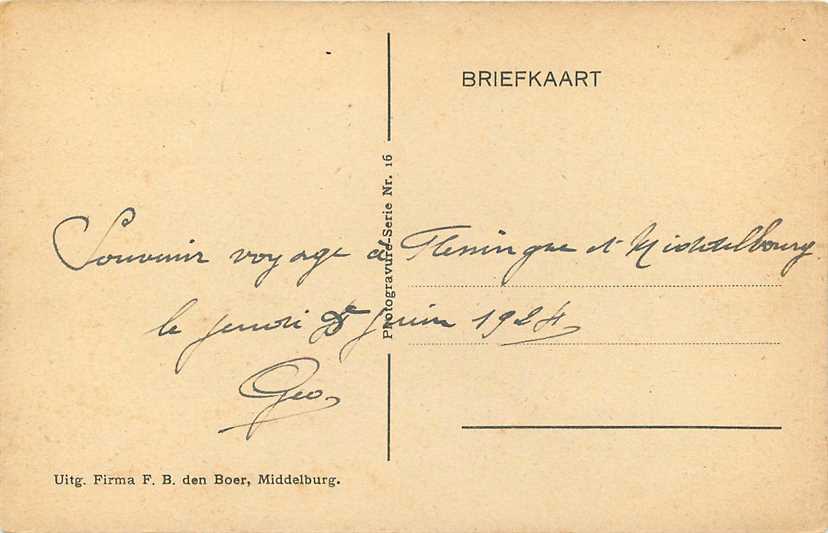 BRIEFKAART
Photogravure-Serie Nr. 16
Souvenir voyage à Flessingue et Middelbourg
le jeudi 5 juin 1924
Geo.
Uitg. Firma F. B. den Boer, Middelburg.